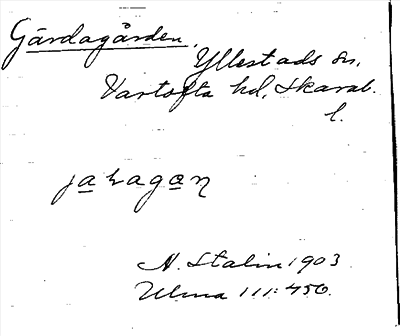 Gärdagården,
Yllestads sn,
Vartofta hd, Skarab.
l.
N. Stalin 1903
Ulma 111:450.